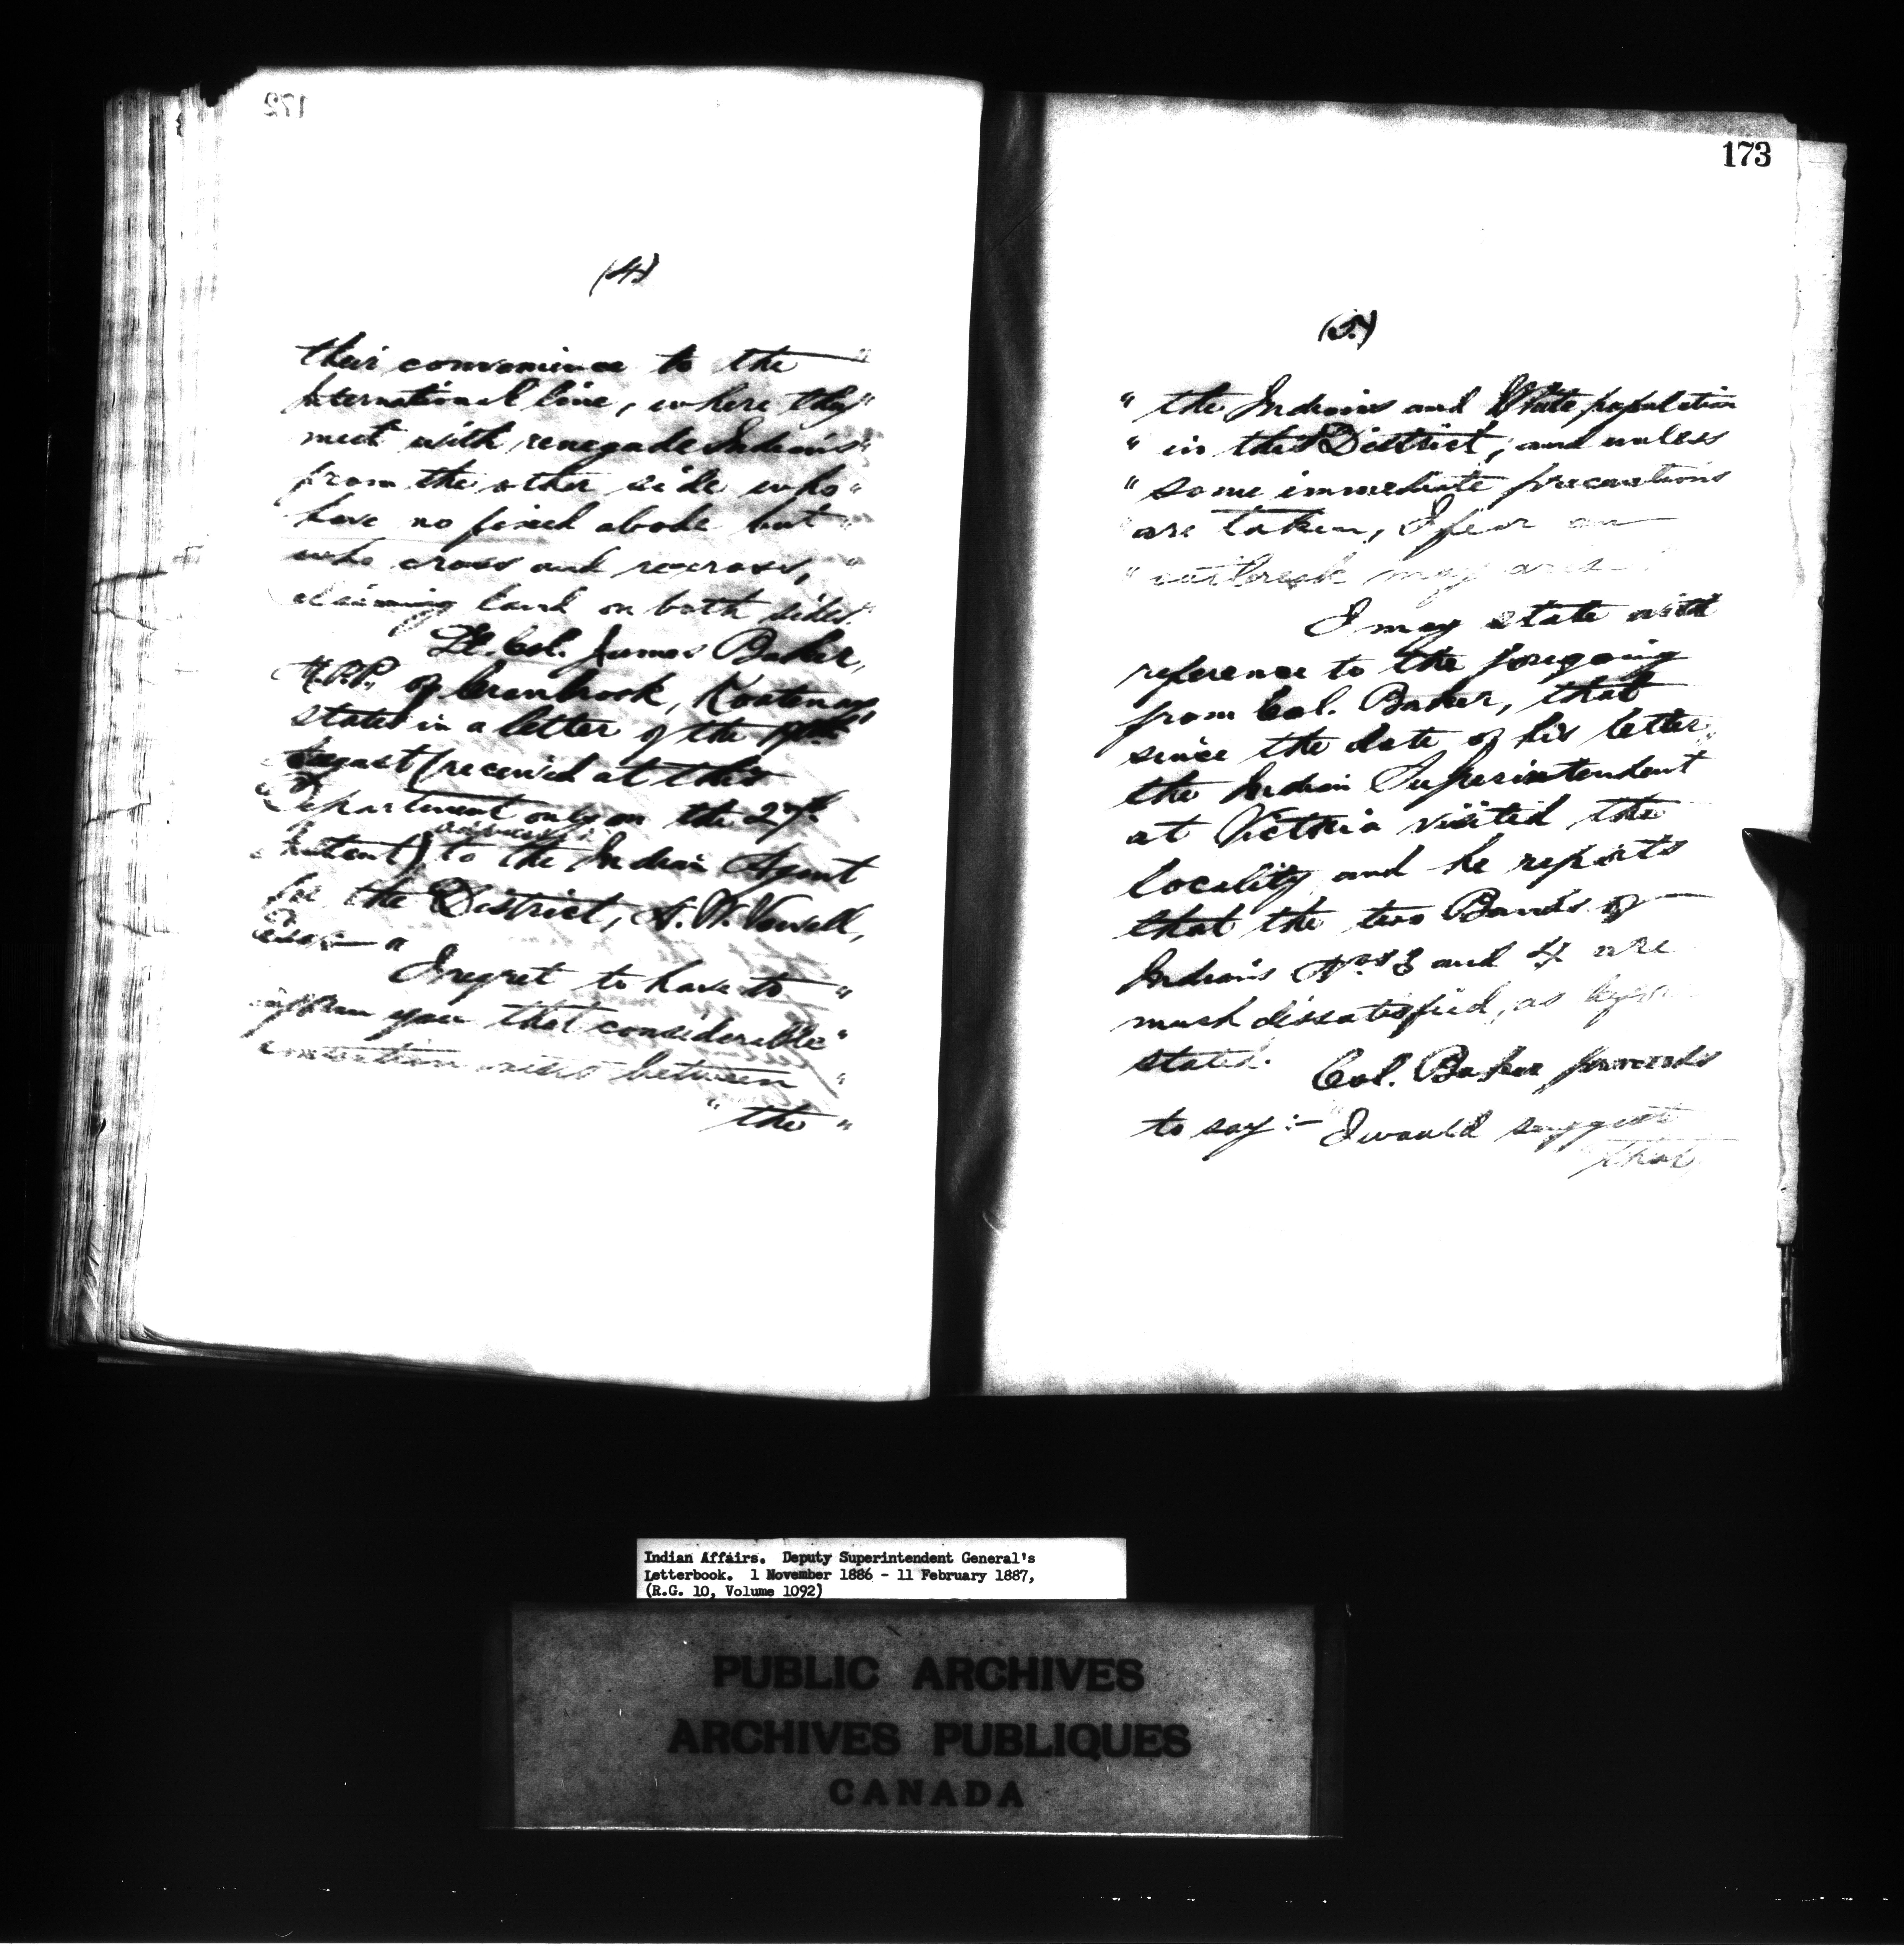 172
(4)
their convenience to the "
International line, where they "
meet with renegade Indians "
from the other side who "
have no fixed abode but "
who cross and recross, "
claiming land on both sides."
Lt. Col. James Baker,
M.P.P., of Cranbrook, Kootenay
states in a letter of the
August (received at this
Department only on the 27th
Instant) addressed to the Indian Agent
for the District, A. W. Vowell,
Esq:—
I regret to have to "
inform you that considerable "
between "
"the "
173
(5)
" the Indians and White population
" in this District, and unless
" some immediate precautions
" are taken, I fear an
" outbreak may arise.
I may state with
reference to the foregoing
from Col. Baker, that
since the date of his letter,
the Indian Superintendent
at Victoria visited the
locality, and he reports
that the two Bands of
Indians Nos 3 and 4 are
much dissatisfied, as before
stated.
Col. Baker proceeds
to say:— "I would suggest
"that
Indian Affairs. Deputy Superintendent General's
Letterbook. 1 November 1886 - 11 February 1887,
(R.G. 10, Volume 1092)
PUBLIC ARCHIVES
ARCHIVES PUBLIQUES
CANADA